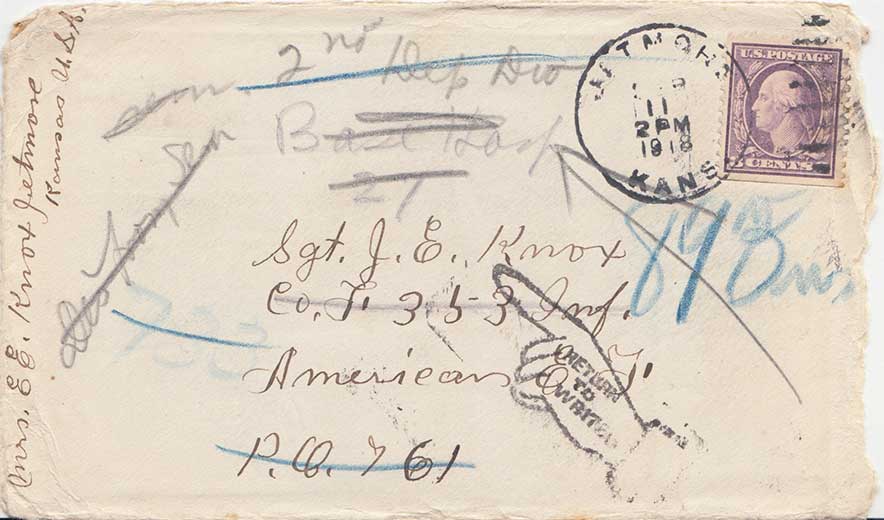 Mrs. E E. Knox Jetmore
Kansas U.S.A.
2nd Dep Div
Base Hosp
27
JETMORE
11
2 PM
1918
KANS
U.S. POSTAGE
3 CENTS 3
89th Div.
Sgt. J. E. Knox
Co. F. 353 Inf.
American E. F.
P.O. 761
RETURN
TO
WRITER